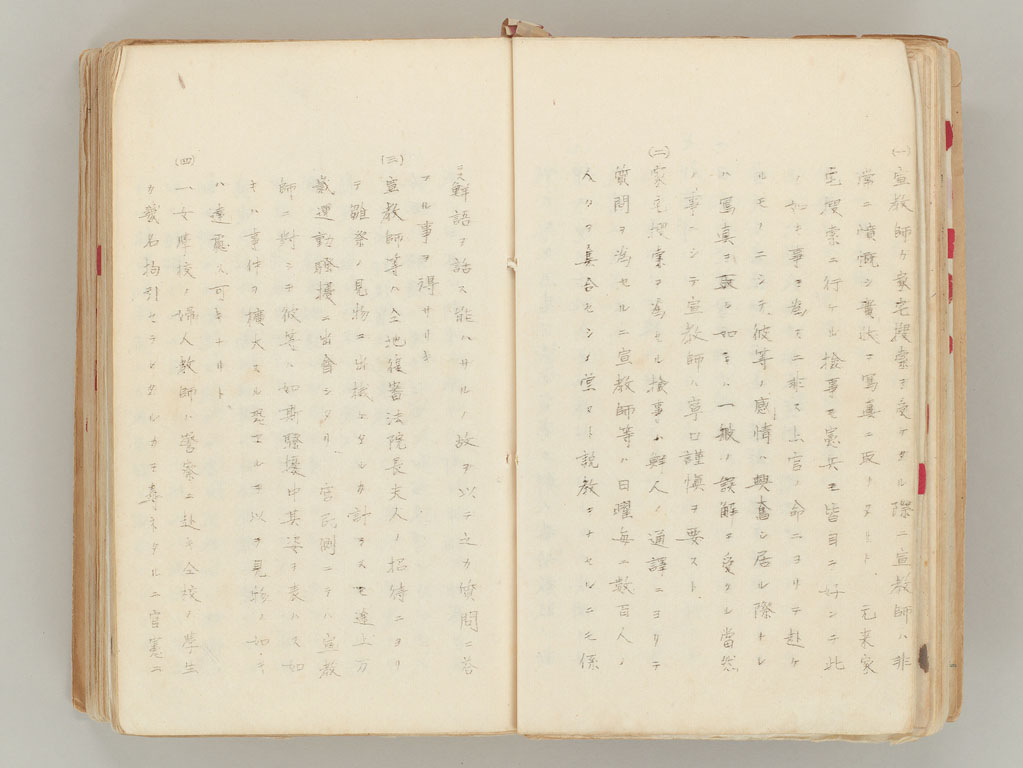 (一)宣教師ケ家宅搜索ヲ受ケタル際ニ宣教師ハ非
常ニ憤慨シ 寫真ニ取リタリト 元来家
宅搜索ニ行ケル檢事モ憲兵モ皆自ニ好ンテ此
ノ如キ事ヲ為スニ非ス上官ノ命ニヨリテ赴ケ
ルモノニシテ彼等ノ感情ハ興奮シ居ル際トテ
ハ寫真ヲ 如キハ一般ノ誤解ヲ受クル當然
ノ事ニシテ宣教師ハ寧ロ謹愼ヲ要スト
(二)家宅搜索ヲ為セル檢事ハ鮮人ノ通譯ニヨリテ
質問ヲ為セルニ宣教師等ハ日曜毎ニ数百人ノ
人々ヲ集合セシメ堂々ト説教ヲナセルニモ係
ラス鮮語ヲ話ス能ハサルノ故ヲ以テ之カ質問ニ答
フル事ヲ得サリキ
(三)宣教師等ハ全地復審法院長夫人ノ招待ニヨリ
テ雛祭ノ見物ニ出掛ケタルカ計ラスモ途上万
歳運動騷擾ニ出會シタリ 官民側ニテハ宣教
師ニ對シテ彼等ハ如斯騷擾中其姿ヲ表ハス如
キハ事件ヲ擴大スル恐アルヲ以テ見物ノ如キ
ハ遠慮ス可キナリト
(四)ハ女學校ノ婦人教師ハ警察ニ赴キ仝校ノ學生
カ幾名拘引セラレタルカヲ尋ネタルニ官憲ニ